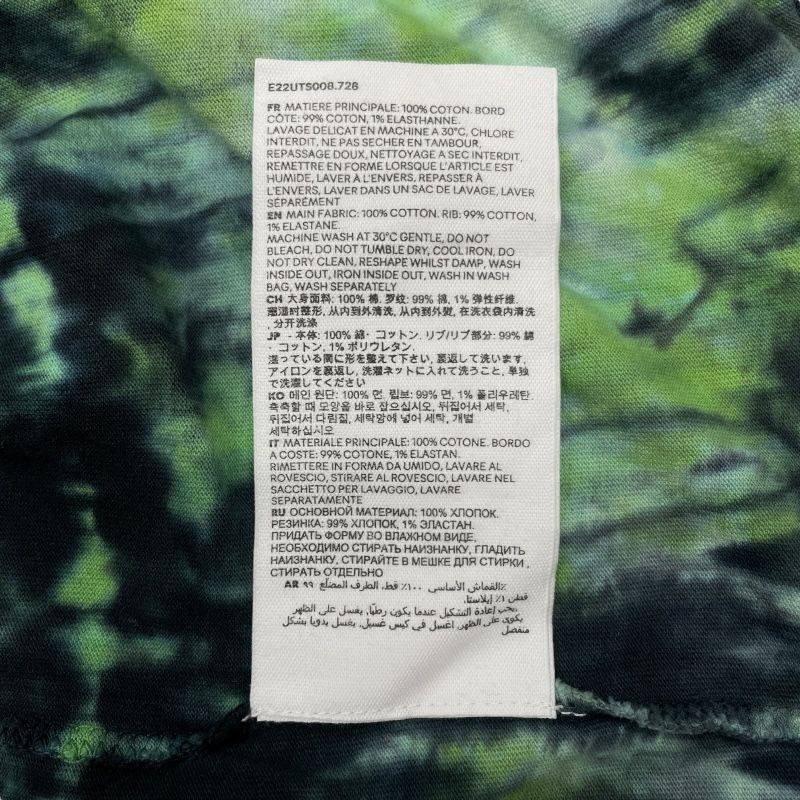 E22UTS008.726
FR MATIERE PRINCIPALE: 100% COTON. BORD
CÔTE: 99% COTON, 1% ELASTHANNE.
LAVAGE DELICAT EN MACHINE A 30°C, CHLORE
INTERDIT, NE PAS SECHER EN TAMBOUR,
REPASSAGE DOUX, NETTOYAGE A SEC INTERDIT,
REMETTRE EN FORME LORSQUE L'ARTICLE EST
HUMIDE, LAVER À L'ENVERS, REPASSER À
L'ENVERS, LAVER DANS UN SAC DE LAVAGE, LAVER
SÉPARÉMENT
EN MAIN FABRIC: 100% COTTON. RIB: 99% COTTON,
1% ELASTANE.
MACHINE WASH AT 30°C GENTLE, DO NOT
BLEACH, DO NOT TUMBLE DRY, COOL IRON, DO
NOT DRY CLEAN, RESHAPE WHILST DAMP, WASH
INSIDE OUT, IRON INSIDE OUT, WASH IN WASH
BAG, WASH SEPARATELY
CH 大身面料: 100% 棉. 罗纹: 99% 棉, 1% 弹性纤维.
潮湿时整形, 从内到外清洗, 从内到外熨, 在洗衣袋内清洗
, 分开洗涤
JP - 本体: 100% 綿・コットン. リブ/リブ部分: 99% 綿
・コットン, 1% ポリウレタン.
湿っている間に形を整えて下さい, 裏返して洗います,
アイロンを裏返し, 洗濯ネットに入れて洗うこと, 単独
で洗濯してください
KO 메인 원단: 100% 면. 립브: 99% 면, 1% 폴리우레탄
축축할 때 모양을 바로 잡으십시오, 뒤집어서 세탁,
뒤집어서 다림질, 세탁망에 넣어 세탁, 개별
세탁하십시오
IT MATERIALE PRINCIPALE: 100% COTONE. BORDO
A COSTE: 99% COTONE, 1% ELASTAN.
RIMETTERE IN FORMA DA UMIDO, LAVARE AL
ROVESCIO, STIRARE AL ROVESCIO, LAVARE NEL
SACCHETTO PER LAVAGGIO, LAVARE
SEPARATAMENTE
RU ОСНОВНОЙ МАТЕРИАЛ: 100% ХЛОПОК.
РЕЗИНКА: 99% ХЛОПОК, 1% ЭЛАСТАН.
ПРИДАТЬ ФОРМУ ВО ВЛАЖНОМ ВИДЕ,
НЕОБХОДИМО СТИРАТЬ НАИЗНАНКУ, ГЛАДИТЬ
НАИЗНАНКУ, СТИРАЙТЕ В МЕШКЕ ДЛЯ СТИРКИ ,
СТИРАТЬ ОТДЕЛЬНО
AR القماش الأساسي: ١٠٠٪ قطن. الطرف المضلّع: ٩٩٪
قطن, ١٪ إيلاستا.
يجب إعادة التشكيل عندما يكون رطبًا, يغسل على الظهر
يكوى على الظهر, اغسيل في كيس غسيل, يغسل يدويا بشكل
منفصل